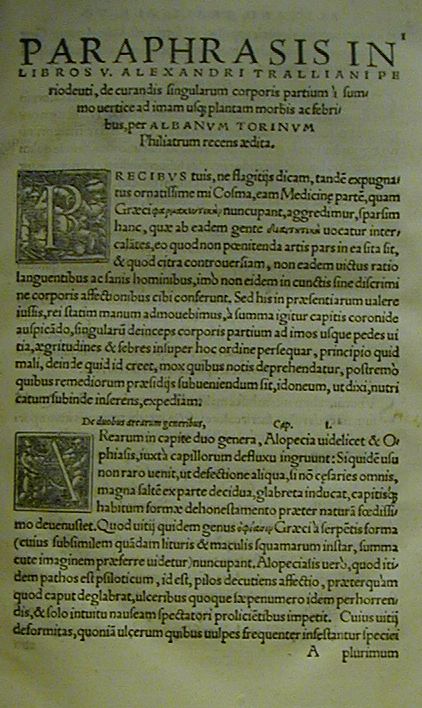 1
PARAPHRASIS IN
LIBROS V. ALEXANDRI TRALLIANI PE
riodeuti, de curandis singularum corporis partium à sum/
mo vertice ad imam usq; plantam morbis ac febri/
bus, per ALBANVM TORINVM
Philiatrum recens ædita.
PRECIBVS tuis, ne flagitijs dicam, tandē expugna/
tus ornatissime mi Cosma, eam Medicinę partē, quam
Græci φαρμακευτικὴν nuncupant, aggredimur, sparsim
hanc, quæ ab eadem gente διαιτητικὴ uocatur inter/
calātes, eo quod non pœnitenda artis pars in ea sita sit,
& quod citra controuersiam, non eadem uictus ratio
languentibus ac sanis hominibus, imò non eidem in cunctis sine discrimi
ne corporis affectionibus cibi conferunt. Sed his in præsentiarum ualere
iussis, rei statim manum admouebimus, à summa igitur capitis coronide
auspicādo, singularū deinceps corporis partium ad imos usque pedes ui
tia, ægritudines & febres insuper hoc ordine persequar, principio quid
mali, deinde quid id creet, mox quibus notis deprehendatur, postremò
quibus remediorum præsidijs subueniendum sit, idoneum, ut dixi, nutri
catum subinde inserens, expediam.
De duobus arearum generibus, Cap. I.
ARearum in capite duo genera, Alopecia uidelicet & O/
phiasis, iuxtà capillorum defluxu ingruunt: Siquidē usu
non raro uenit, ut defectione aliqua, si nō cęsaries omnis,
magna saltē ex parte decidua, glabreta inducat, capitisq;
habitum formæ dehonestamento præter naturā fœdissi/
mo deuenustet. Quod uitij quidem genus ὀφίασιν Græci à serpētis forma
(cuius subsimilem quādam lituris & maculis squamarum instar, summa
cute imaginem præferre uidetur) nuncupant, Alopecíasis uerò, quod iti/
dem pathos est psiloticum, id est, pilos decutiens affectio, præterquàm
quod caput deglabrat, ulceribus quoque sæpenumero idem perhorren/
dis, & solo intuitu nauseam spectatori proliciētibus impetit. Cuius uitij
deformitas, quoniā ulcerum quibus uulpes frequenter infestantur speciei
A plurimum